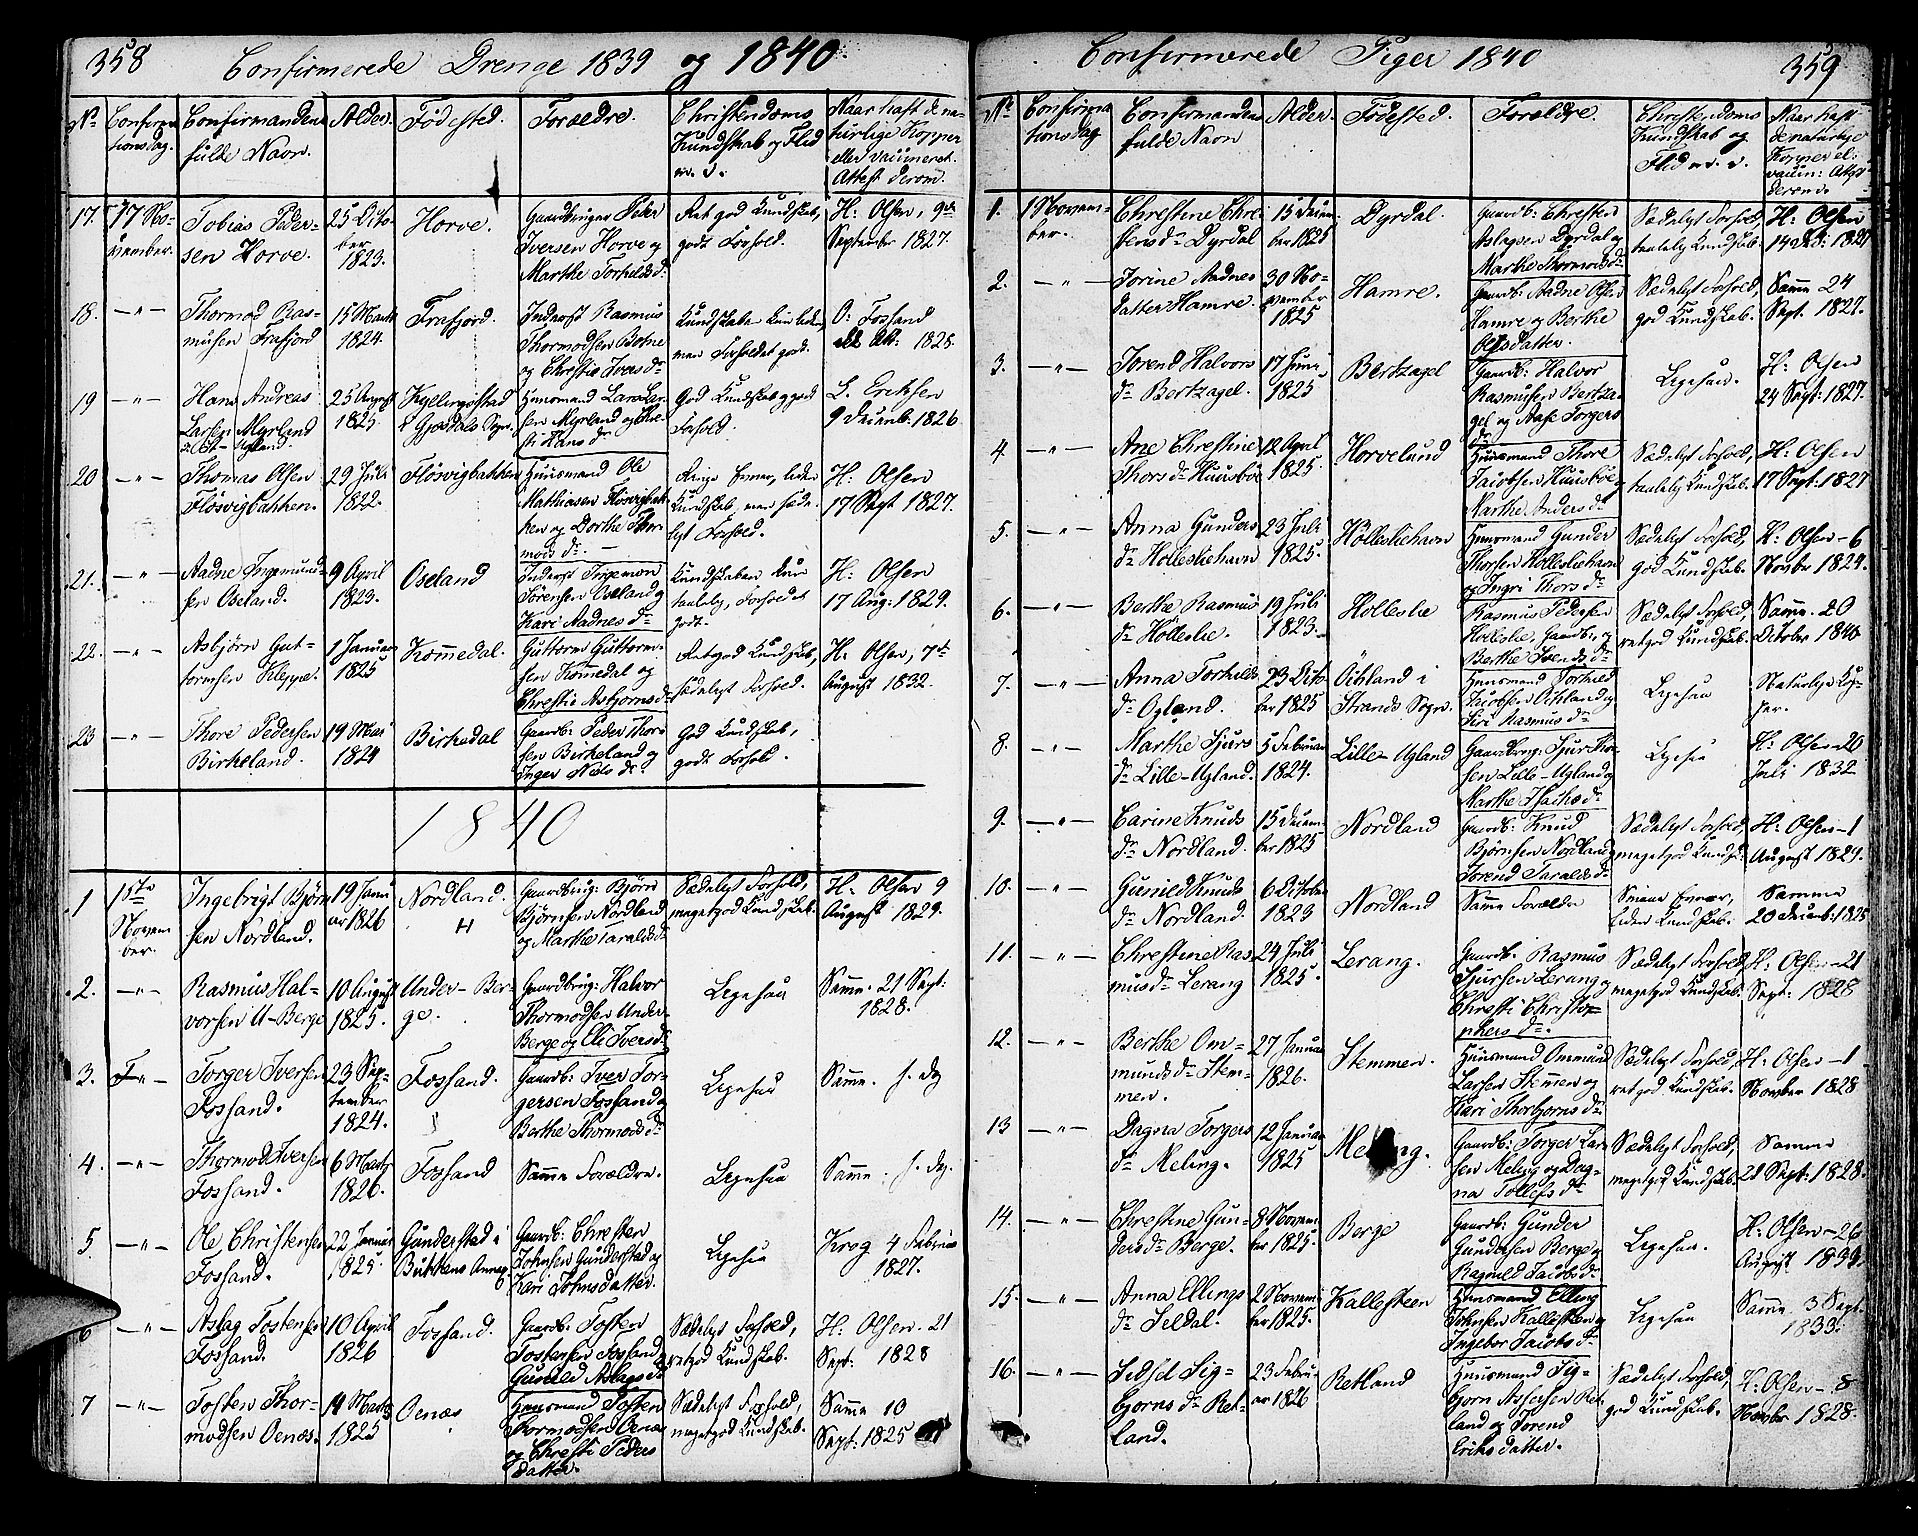 358 Confirmerede Drenge 1839 og 1840.
No. Confirmationsdag. Confirmandens fulde Navn. Alder. Födested. Forældre. Christendoms Kundskab og Flid m. v. Naar haft de naturlige Kopper eller vaccineret. Attest derom.
17. 17 November. Tobias Pedersen Horve. 25 October 1823. Horve. Gaardbruger Peder Iversen Horve og Marthe Torkildsdr. Ret god Kundskab, godt Forhold. H: Olsen, 9de September 1827.
18. -"- Thormod Rasmusen Frafjord 15 Marts 1824. Frafjord. Inderst Rasmus Thormodsen Botne og Christie Iversdr. Kundskaben kun liden, men Forholdet godt. O: Fossand 1828.
19 -"- Hans Andreas Larsen Myrland 25 August 1825. Kyllingstad i Gjesdals Sogn. Huusmand Lars Larsen Myrland og Hansdr. God Kundskab og godt Forhold. L. Erichsen 9 Decemb. 1826
20 -"- Thomas Olsen Flösvigbakken. 29 Juli 1822. Flösvigbakken Huusmand Ole Mathiasen Flösvigbakken og Dorthe Thormodsdr. Ringe Evner, liden Kundskab, men sædeligt Forhold. H: Olsen 17 Sept 1827.
21. -"- Aadne Ingemundsen Oseland. 9 April 1823. Oseland Inderst Ingemon Sörensen Oseland og Kari Aadnesdr. Kundskaben kun taalelig, Forholdet godt. H: Olsen 17 Aug: 1829.
22. -"- Asbjörn Guttormsen Kleppe. 1 Januar 1825 Kommedal. Guttorm Guttormsen Kommedal og Christie Asbjornsdr. Ret god Kundskab, sædeligt Forhold. H: Olsen, 7de August 1832.
23 -"- Thore Pedersen Birkeland. 19 Mai 1824 Birkedal Gaardb: Peder Thorsen Birkeland og Inger Nilsdr. God Kundskab, godt Forhold.
1840
1 1ste November. Ingebrigt Björnsen Nordland. 19 Januar 1826 Nordland. H Gaardbrug: Björn Björnsen Nordland og Marthe Taraldsdr. Sædeligt Forhold, meget god Kundskab. H: Olsen 9 August 1829.
2. -"- Rasmus Halvorsen U-Berge 10 August 1825. Under-Berge. Gaardbrug: Halvor Thormodsen Under-Berge og Eli Iversdr. Ligesaa Samme. 21 Sept: 1828.
3. -"- Torger Iversen Fossand. 23 September 1824. Fossand. Gaardb: Iver Torjersen Fossand og Berthe Thormodsdr. Ligesaa Samme. s. dg
4. -"- Thormod Iversen Fossand. 6 Marts 1826. Fossand Samme Forældre. Ligesaa Samme. s. dg.
5. -"- Ole Christensen Fossand. 22 Januar 1825. Gunderstad i Bukkens Annex. Gaardb: Christen Johnsen Gunderstad og Kari Johnsdatter. Ligesaa Krog 4 Februar 1827.
6 -"- Aslag Tostensen Fossand. 10 April 1826 Fossand. Gaardb: Tosten Tostensen Fossand, Gunild Aslagsdr. Sædeligt Forhold, ret god Kundskab. H: Olsen. 21 Sept: 1828
7 -"- Tosten Thormodsen Oenæs. 14 Marts 1825 Oenæs Huusmand Tosten Thormodsen Oenæs og Christi Pedersdatter. Sædeligt Forhold, meget god Kundskab. Samme 10 Sept: 1825
Confirmerede Piger 1840 359
No. Confirmationsdag Confirmandens fulde Navn Alder. Födested. Forældre. Christendoms Kundskab og Flid m. v. Naar haft de naturlige Kopper el: vaccin: Attest derom.
1. 1 November. Christine Christensdr. Dyrdal 15 December 1825 Dyrdal. Gaardb: Christen Aslagsen Dyrdal og Marthe Thormodsdr. Sædeligt Forhold, taalelig Kundskab. H: Olsen 14 1827
2. -"- Jorine Aadnesdatter Hamre. 30 November 1825 Hamre. Gaardb: Aadne Olsen Hamre og Berthe Olsdatter. Sædeligt Forhold, god Kundskab. Samme 24 Sept. 1827.
3. -"- Jorend Halvorsdr. Bertzagel. 17 Juni 1825 Bertzagel Gaardb: Halvor Rasmusen Bertzagel og Aase Torgersdr. Ligesaa. H: Olsen 24 Sept: 1827.
4. -"- Ane Christine Thorsdr. Huusböe 12 April 1825. Horvelund Huusmand Thore Jacobsen Huusböe og Marthe Andersdr. Sædeligt Forhold, taalelig Kundskab. H: Olsen 17 Sept: 1827
5. -"- Anna Gundersdr. Hollesliehavn 23 Juli 1825. Hölleslichavn Huusmand Gunder Thorsen Höllesliehavn og Ingri Thorsdr. Sædeligt Forhold, god Kundskab. H: Olsen - 6 Novber 1824.
6. -"- Berthe Rasmusdr. Hölleslie. 19 Juli 1823. Hölleslie Rasmus Pedersen Hölleslie, Gaardb. og Berthe Svendsdr. Sædeligt Forhold, ret god Kundskab. Samme. 20 October 1840
7. -"- Anna Torkildsdr. Ogland. 23 October 1825 Öibland i Strands Sogn. Huusmand Torkild Jacobsen Öibland og Siri Rasmusdr. Ligesaa Naturlige Kopper.
8. -"- Marthe Sjursdr. Lille-Ugland. 5 Februar 1824. Lille-Ugland Gaardbrug: Sjur Thorsen Lille-Ugland og Marthe Isachsdr. Ligesaa H: Olsen - 20 Juli 1832
9. -"- Carine Knudsdr. Nordland. 15 December 1825 Nordland Gaardb: Knud Björnsen Nordland, Jorend Taraldsdr. Sædeligt Forhold, meget god Kundsk: H: Olsen - 1 August 1829.
10. -"- Gunild Knudsdr. Nordland. 6 October 1823 Nordland Samme Forældre Svage Evner, liden Kundskab. Samme 20 Decemb: 1825
11. -"- Christine Rasmusdr. Lerang 24 Juli 1825. Lerang. Gaardb. Rasmus Sjursen Lerang og Christi Christophersdr. Sædeligt Forhold, meget god Kundskab. H: Olsen - 21 Sept: 1828
12. -"- Berthe Ommundsdr. Stemmen. 27 Januar 1826. Stemmen. Huusmand Ommund Larsen Stemmen og Kari Thorbjornsdr. Sædeligt Forhold, ret god Kundskab. H: Olsen - 1 November 1828
13 -"- Dagna Torgersdr. Meling. 12 Januar 1825 Meling. Gaardb: Torger Larsen Meling og Dagna Tollefsdr. Sædeligt Forhold, meget god Kundskab. Samme 21 Sept: 1828.
14. -"- Christine Gundersdr. Berge. 8 November 1825. Berge Gaardb: Gunder Gundersen Berge og Ragnild Jacobsdr. Ligesaa. H: Olsen - 26 August 1833.
15. -"- Anna Ellingsdr. Seldal. 2 November 1825. Kallesteen Huusmand Elling Johnsen Kallesteen og Ingebor Jacobsdr. Ligesaa Samme 3 Sept. 1833.
16. -"- Sidsel Sigbjornsdr. Retland. 23 Februar 1826 Retland Huusmand Sigbjorn Retland og Jorend Eriksdatter. Sædeligt Forhold, god Kundskab. H: Olsen - 8 Novber 1828.